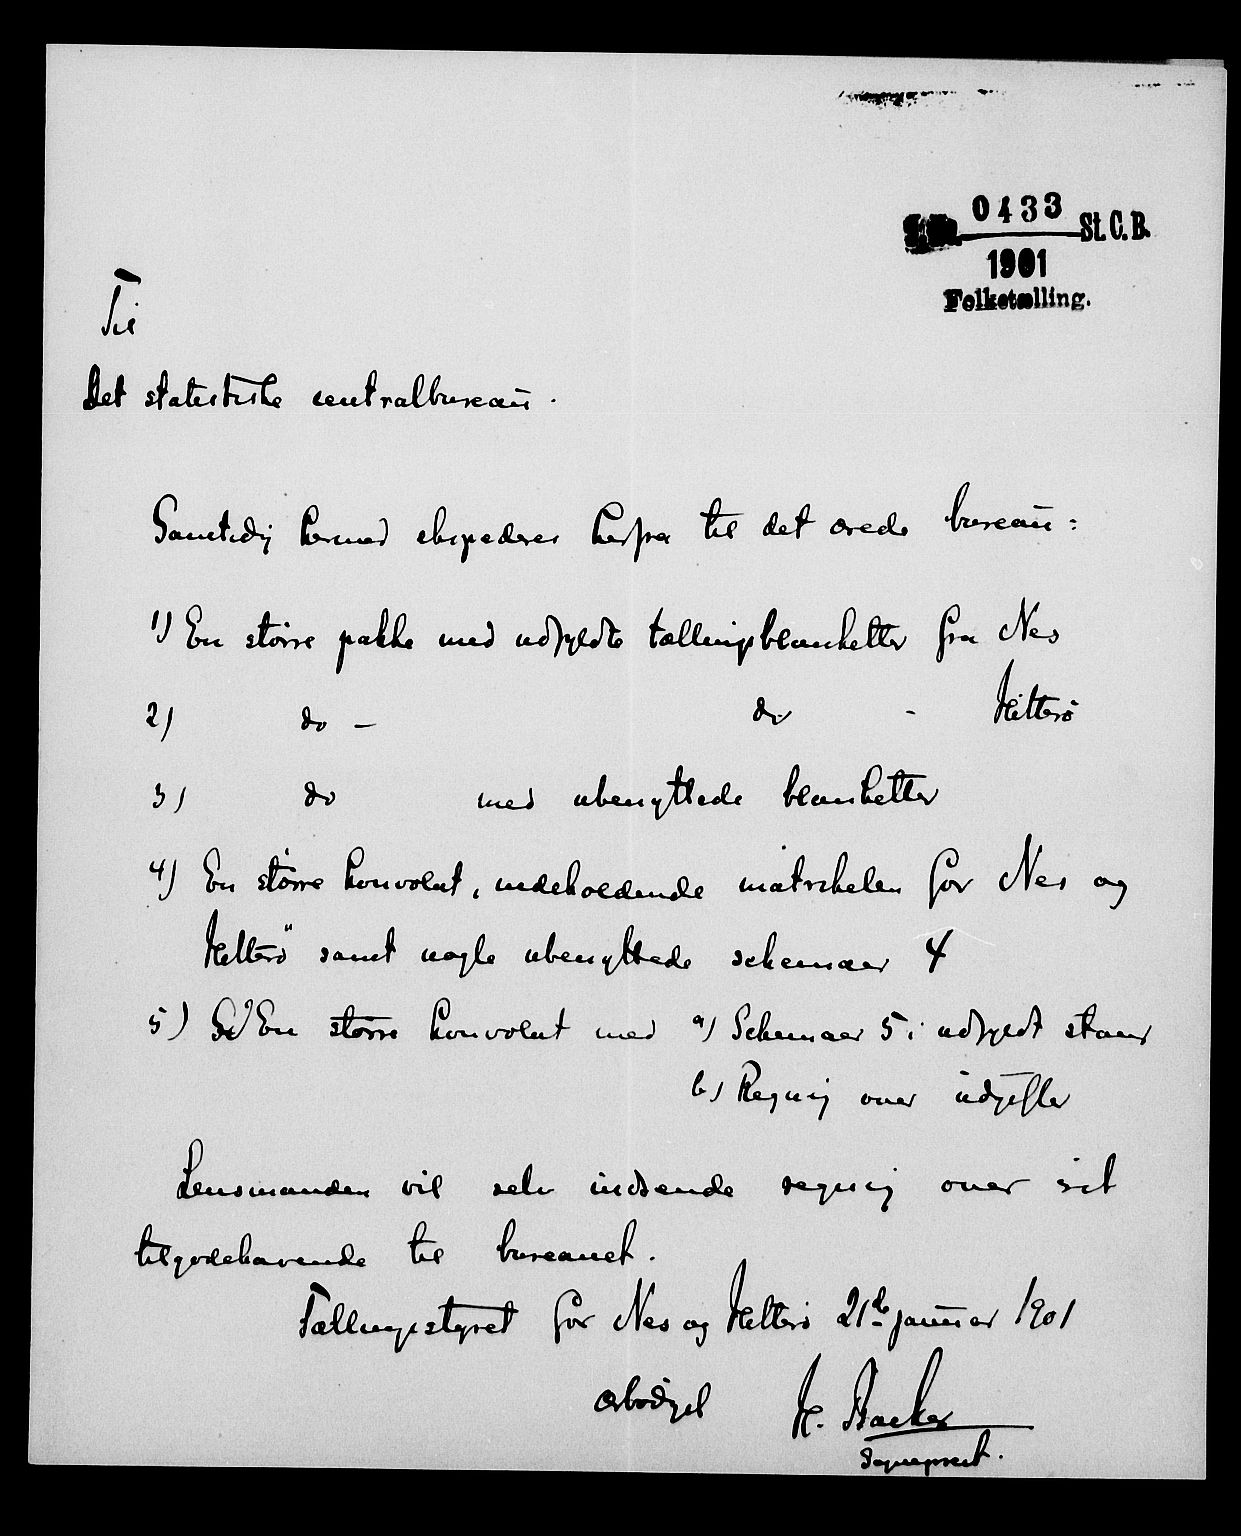 0433
St. C. B.
1901
Folketælling.
Til
Det statistiske centralbureau.
Samtidig hermed ekspederes herfra til det ærede bureau:
1) En större pakke med udfyldte tællingsblanketter fra Nes
2) do - do - Hitterö
3) do med ubenyttede blanketter
4) En större konvolut, indeholdende matrikelen for Nes og
Hitterö samt nogle ubenyttede schemaer 4
5) En större konvolut med a) Schemaer 5 i udfyldt stand
b) Regning over udgifter
Lensmanden vil selv indsende regning over sit
tilgodehavende til bureauet.
Tællingsstyret for Nes og Hitterö 21de januar 1901
ærbödigst H. Barker
sogneprest.